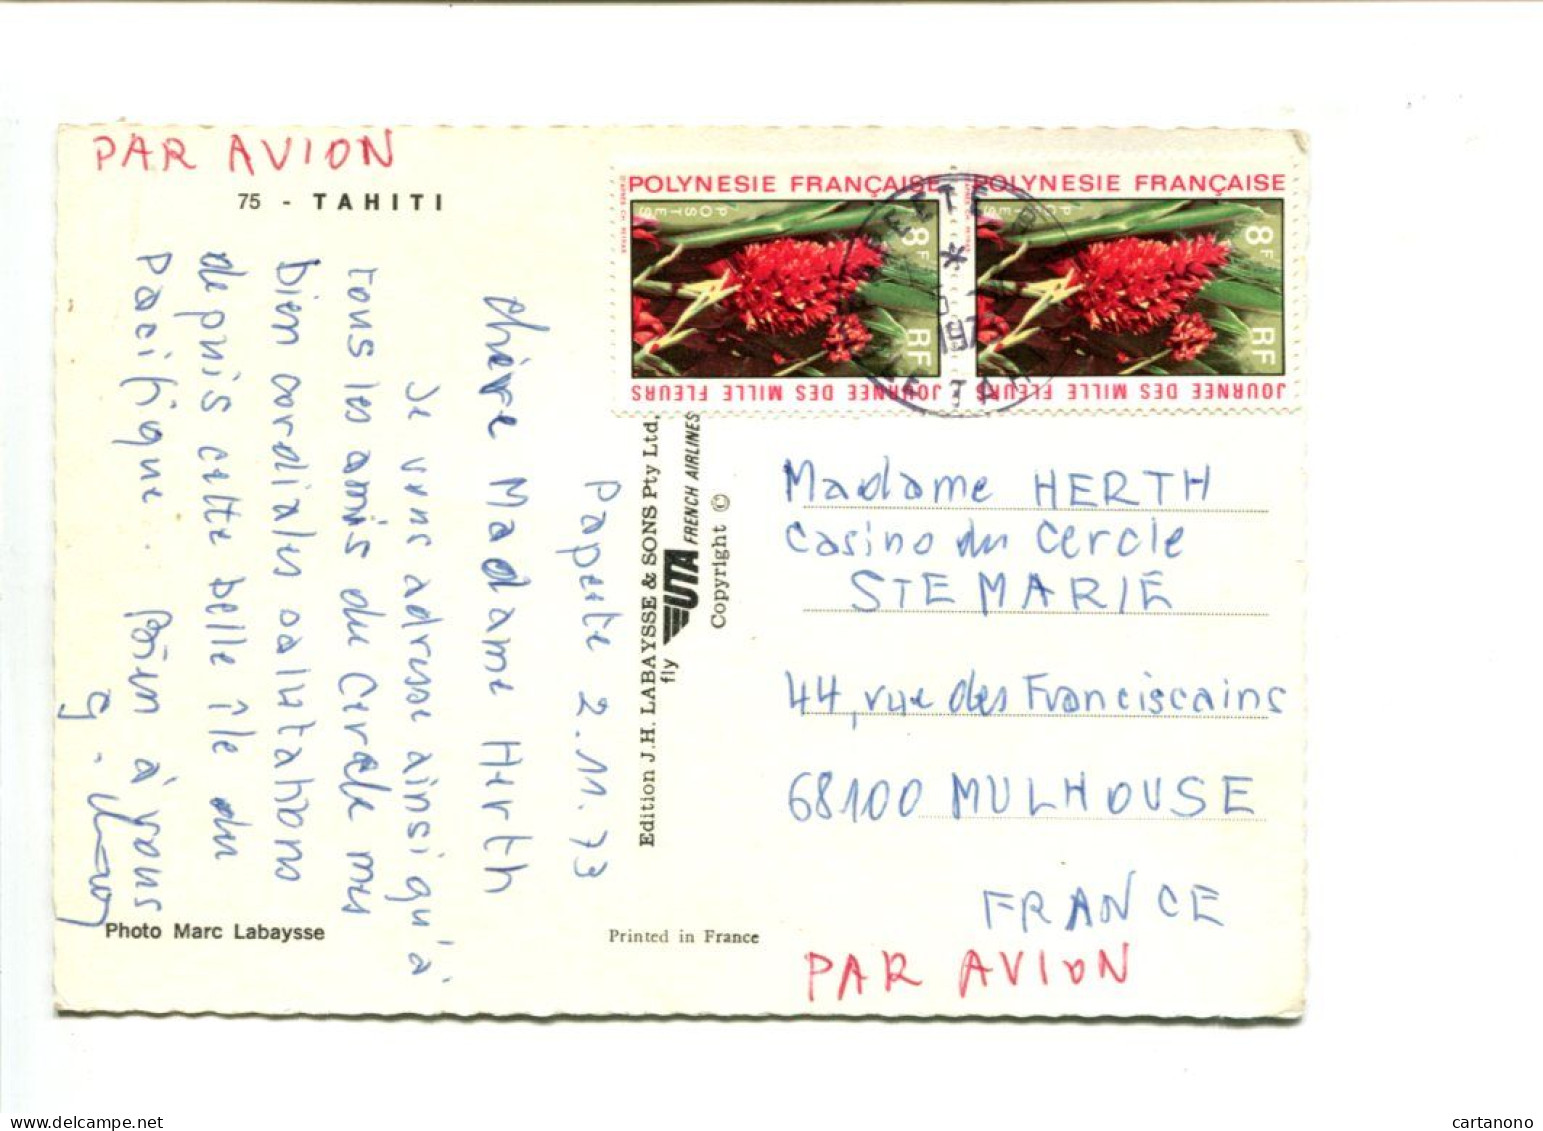 PAR AVION
75 - TAHITI
POLYNESIE FRANÇAISE
POSTES
8F
RF
JOURNEE DES MILLE FLEURS
POLYNESIE FRANÇAISE
8F
RF
JOURNEE DES MILLE FLEURS
Papeete 2.11.73
Chère Madame Herth
Je vous adresse ainsi qu'à
tous les amis du Cercle mes
bien cordiales salutations
depuis cette belle île du
Pacifique. Bien à vous
Edition J.H. LABAYSSE & SONS Pty Ltd,
fly UTA FRENCH AIRLINES
Copyright ©
Madame HERTH
Casino du Cercle
STE MARIE
44, rue des Franciscains
68100 MULHOUSE
FRANCE
PAR AVION
Photo Marc Labaysse
Printed in France
delcampe.net
cartanono